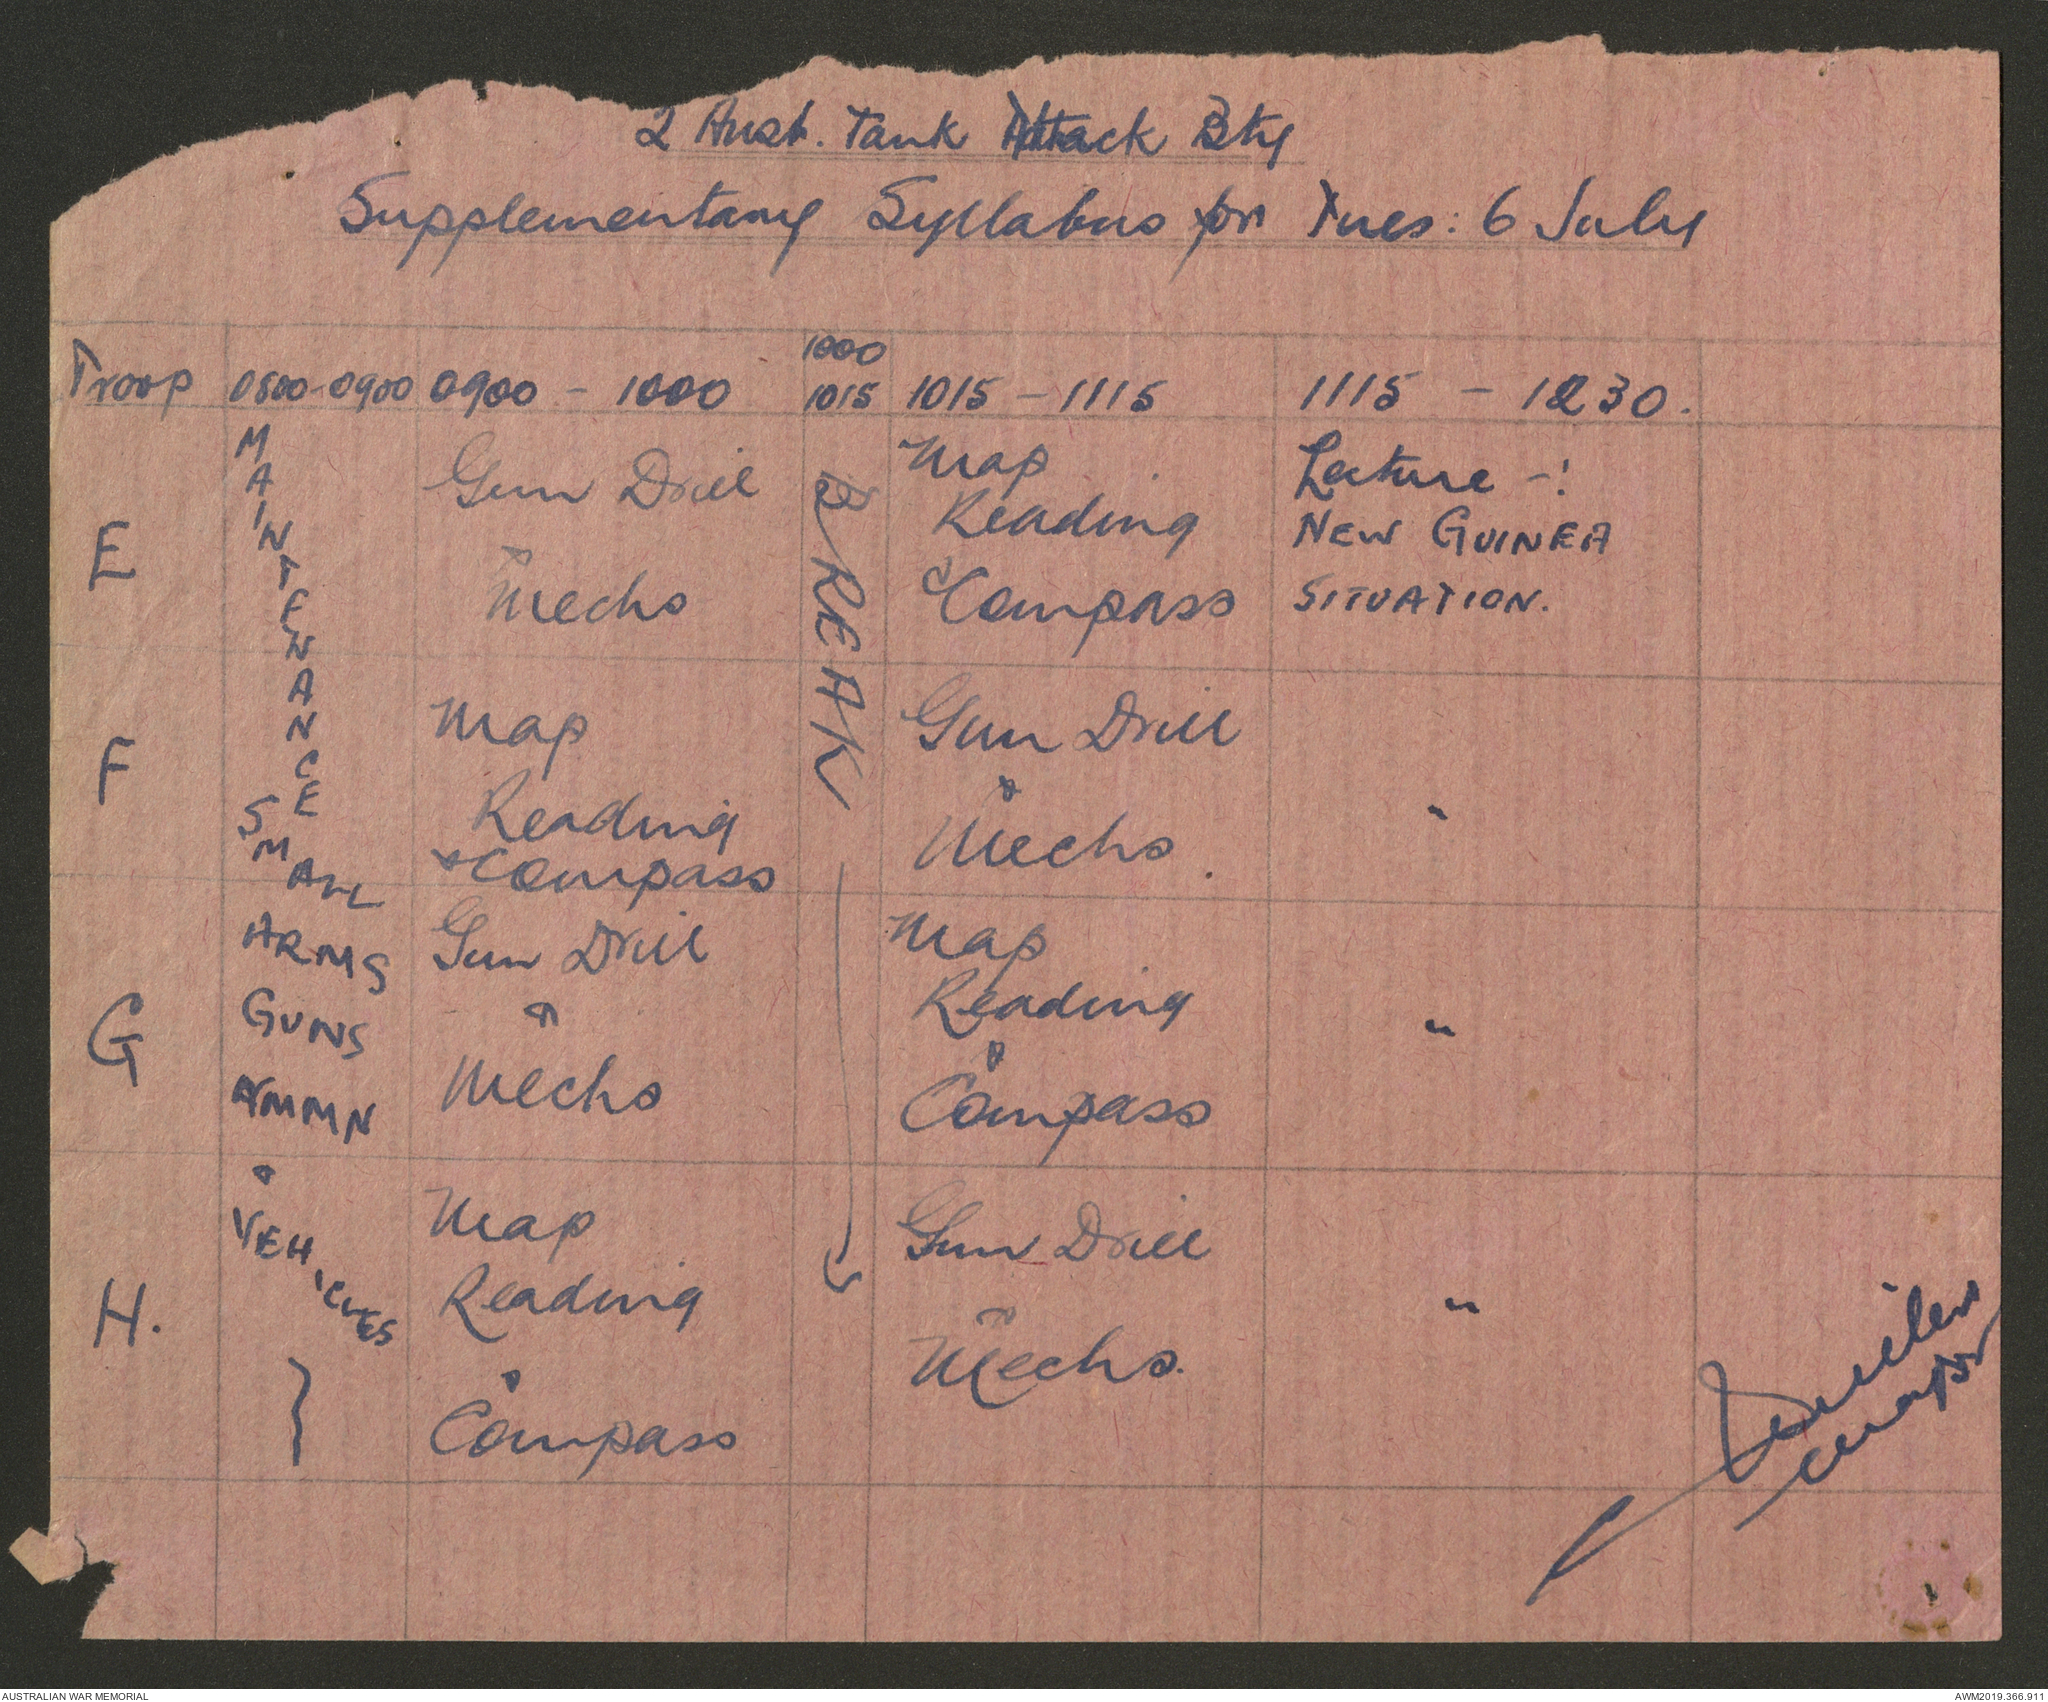 2 Aust. Tank Attack Bty
Supplementary Syllabus for Tues: 6 July
Troop 0800-0900 0900 - 1000 1000 1015 1015 - 1115 1115 - 1230.
MAINTENANCE
SMALL
ARMS
GUNS
AMMN
&
VEHICLES
BREAK
E
Gun Drill
&
Mechs
Map
Reading
&
Compass
Lecture -:
NEW GUINEA
SITUATION.
F
Map
Reading
& Compass
Gun Drill
&
Mechs.
"
G
Gun Drill
&
Mechs
Map
Reading
&
Compass
"
H.
Map
Reading
&
Compass
Gun Drill
&
Mechs.
"
AUSTRALIAN WAR MEMORIAL
AWM2019.366.911